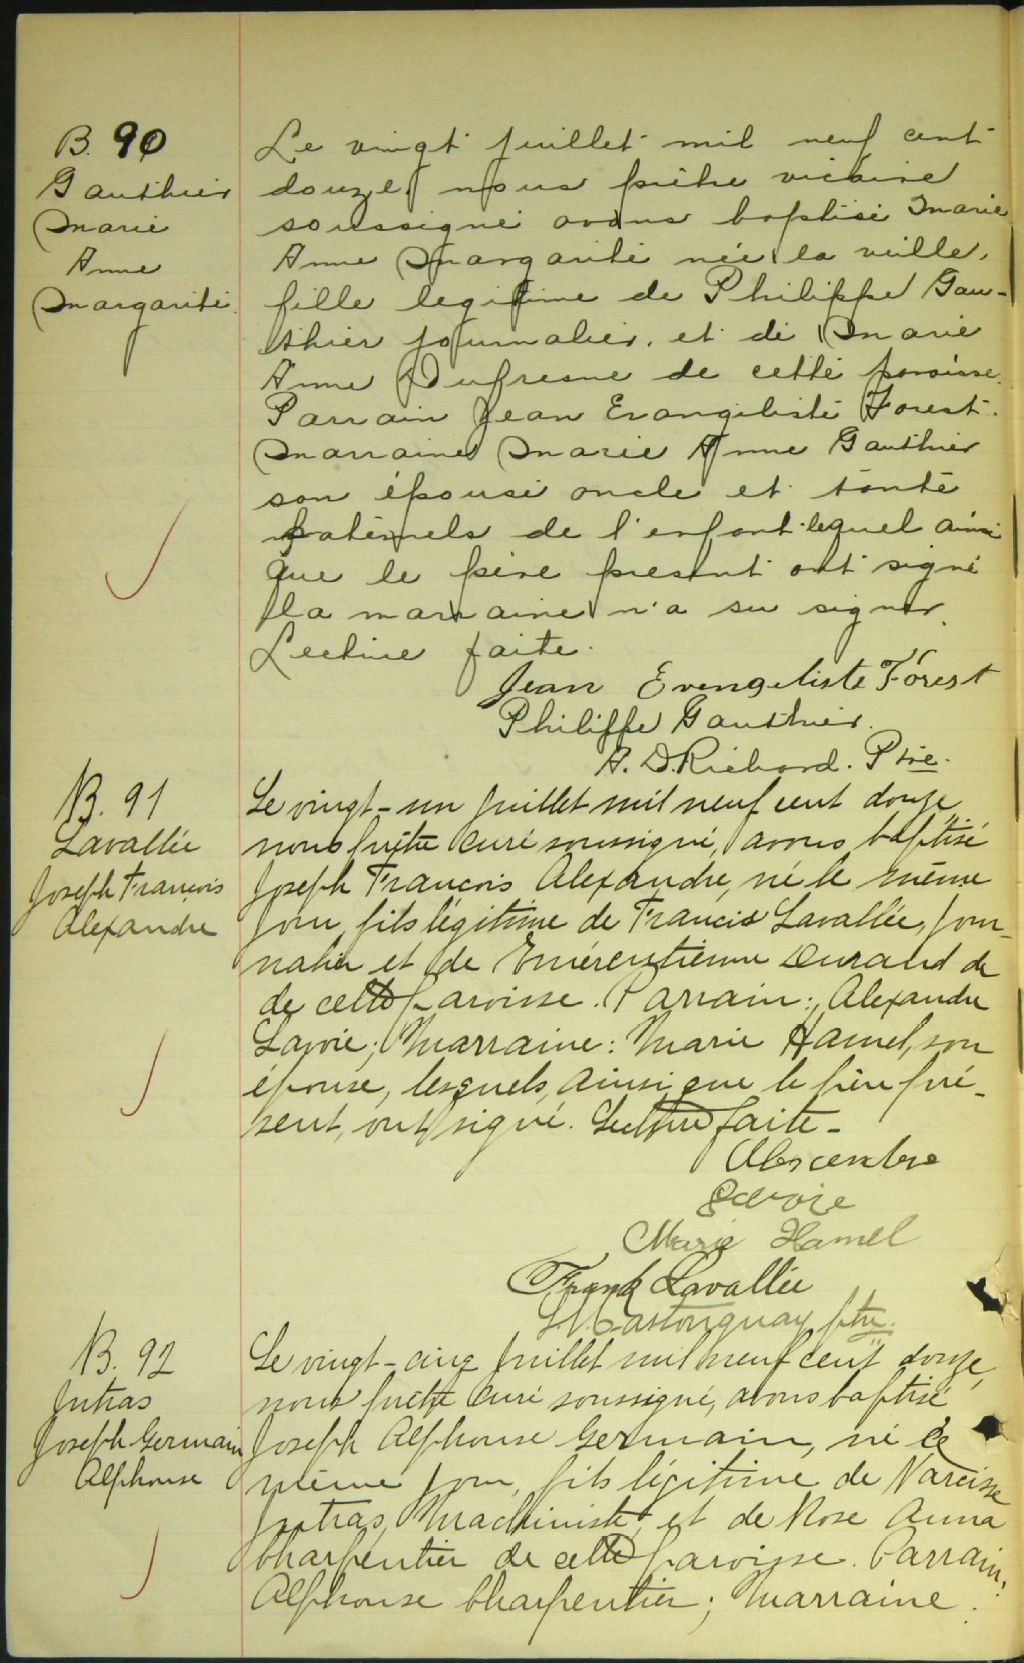 B. 90
Gauthier
Marie
Anne
Margarite.
Le vingt juillet mil neuf cent
douze, nous prêtre vicaire
soussigné avons baptisé Marie
Anne Margarite née la veille,
fille legitime de Philippe Gau-
thier journalier, et de Marie
Anne Dufresne de cette paroisse.
Parrain Jean Evangeliste Forest.
Marraine Marie Anne Gauthier
son épouse oncle et tante
paternels de l'enfant lequel ainsi
que le père present ont signé
la marraine n'a su signer.
Lecture faite.
Jean Evengeliste Forest
Philippe Gauthier.
A. D. Richard. Ptre.
B. 91
Lavallée
Joseph François
Alexandre
Le vingt-un juillet mil neuf cent douze,
nous prêtre curé soussigné, avons baptisé
Joseph François Alexandre, né le même
jour, fils légitime de Francis Lavallée, jour-
nalier et de Emérentienne Durand de
de cette paroisse. Parrain: Alexandre
Savoie; Marraine: Marie Hamel, son
épouse, lesquels, ainsi que le père pré-
sent, ont signé. Lecture faite-
Alexcendre
Savoie
Marie Hamel
Frank Lavallée
Castonguay ptre.
B. 92
Jutras
Joseph Germain
Alphonse
Le vingt-cinq juillet mil neuf cent douze,
nous prêtre curé soussigné, avons baptisé
Joseph Alphonse Germain, né le
même jour, fils légitime de Narcisse
Jutras, Machiniste, et de Rose Anna
Charpentier de cette paroisse. Parrain:
Alphonse Charpentier; Marraine: